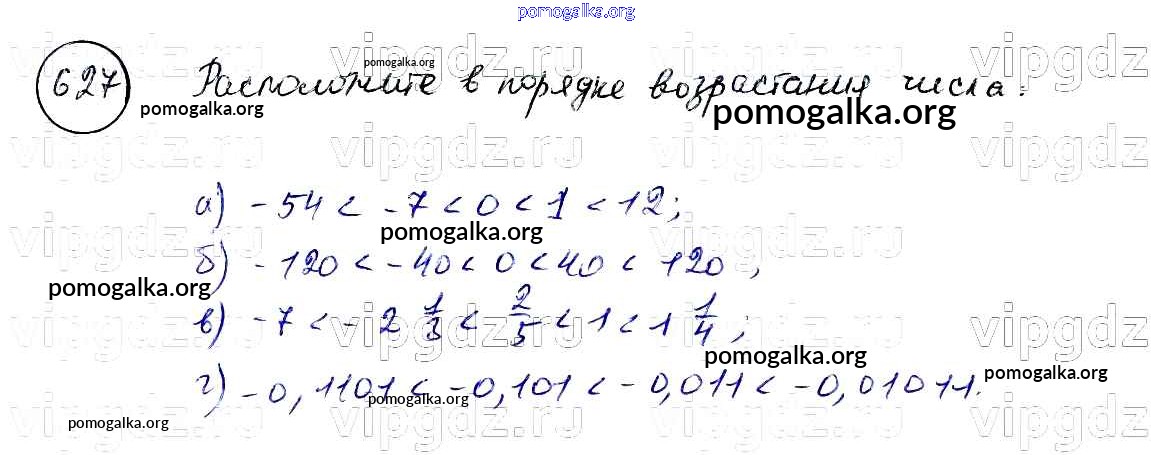 pomogalka.org
627 Расположите в порядке возрастания числа:
pomogalka.org
pomogalka.org
pomogalka.org
vipgdz.ru vipgdz.ru vipgdz.ru vipgdz
vipgdz.ru vipgdz.ru vipgdz.ru vipgdz
а) -54 < -7 < 0 < 1 < 12;
pomogalka.org
vipgdz.ru vipgdz.ru vipgdz.ru vipgdz
б) -120 < -40 < 0 < 40 < 120;
pomogalka.org
в) -7 < -2 1/3 < 2/5 < 1 < 1 1/4;
vipgdz.ru vipgdz.ru vipgdz.ru vipgdz
pomogalka.org
г) -0,1101 < -0,101 < -0,011 < -0,01011.
pomogalka.org
pomogalka.org
pomogalka.org
vipgdz.ru vipgdz.ru vipgdz.ru vipgdz